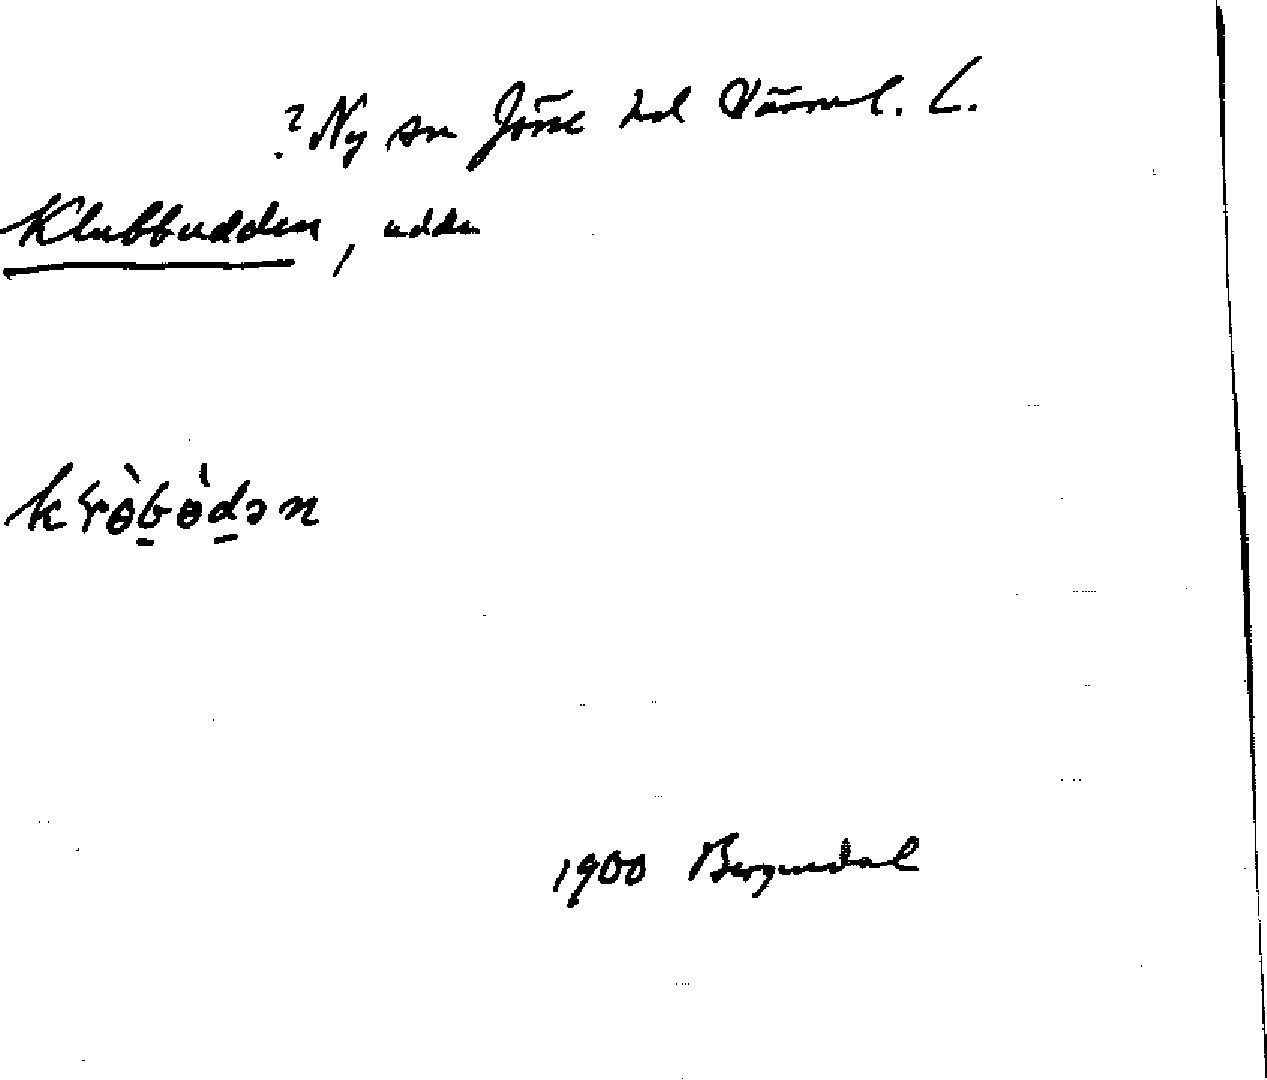 ? Ny sn Jösse hd Värml. L.
Klubbudden, udde
krɵ̀bɵ̀dən
1900 Bergendal